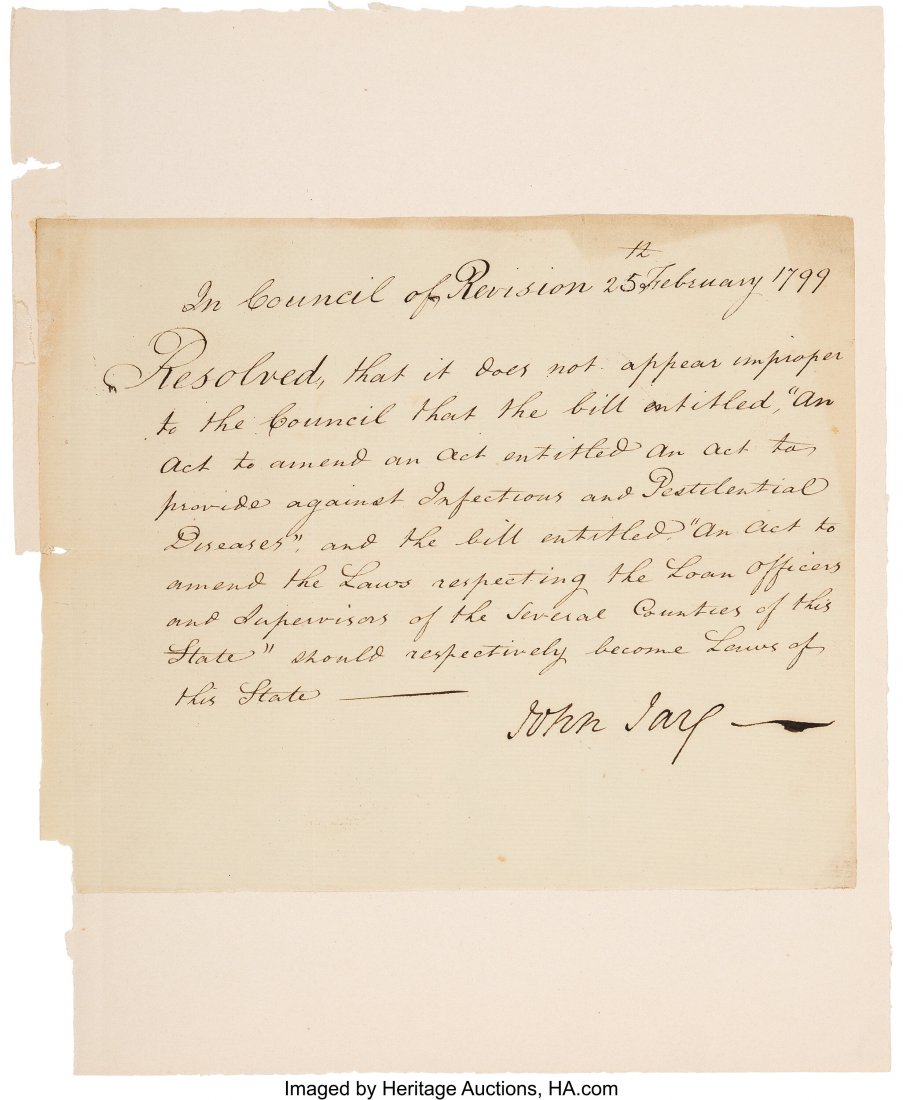 In Council of Revision 25th February 1799
Resolved, that it does not appear improper
to the Council that the bill entitled, "An
Act to amend an Act entitled an act to
provide against Infectious and Pestilential
Diseases", and the bill entitled, "An Act to
amend the Laws respecting the Loan Officers
and Supervisors of the several Counties of this
State" should respectively become Laws of
this State
John Jay
Imaged by Heritage Auctions, HA.com